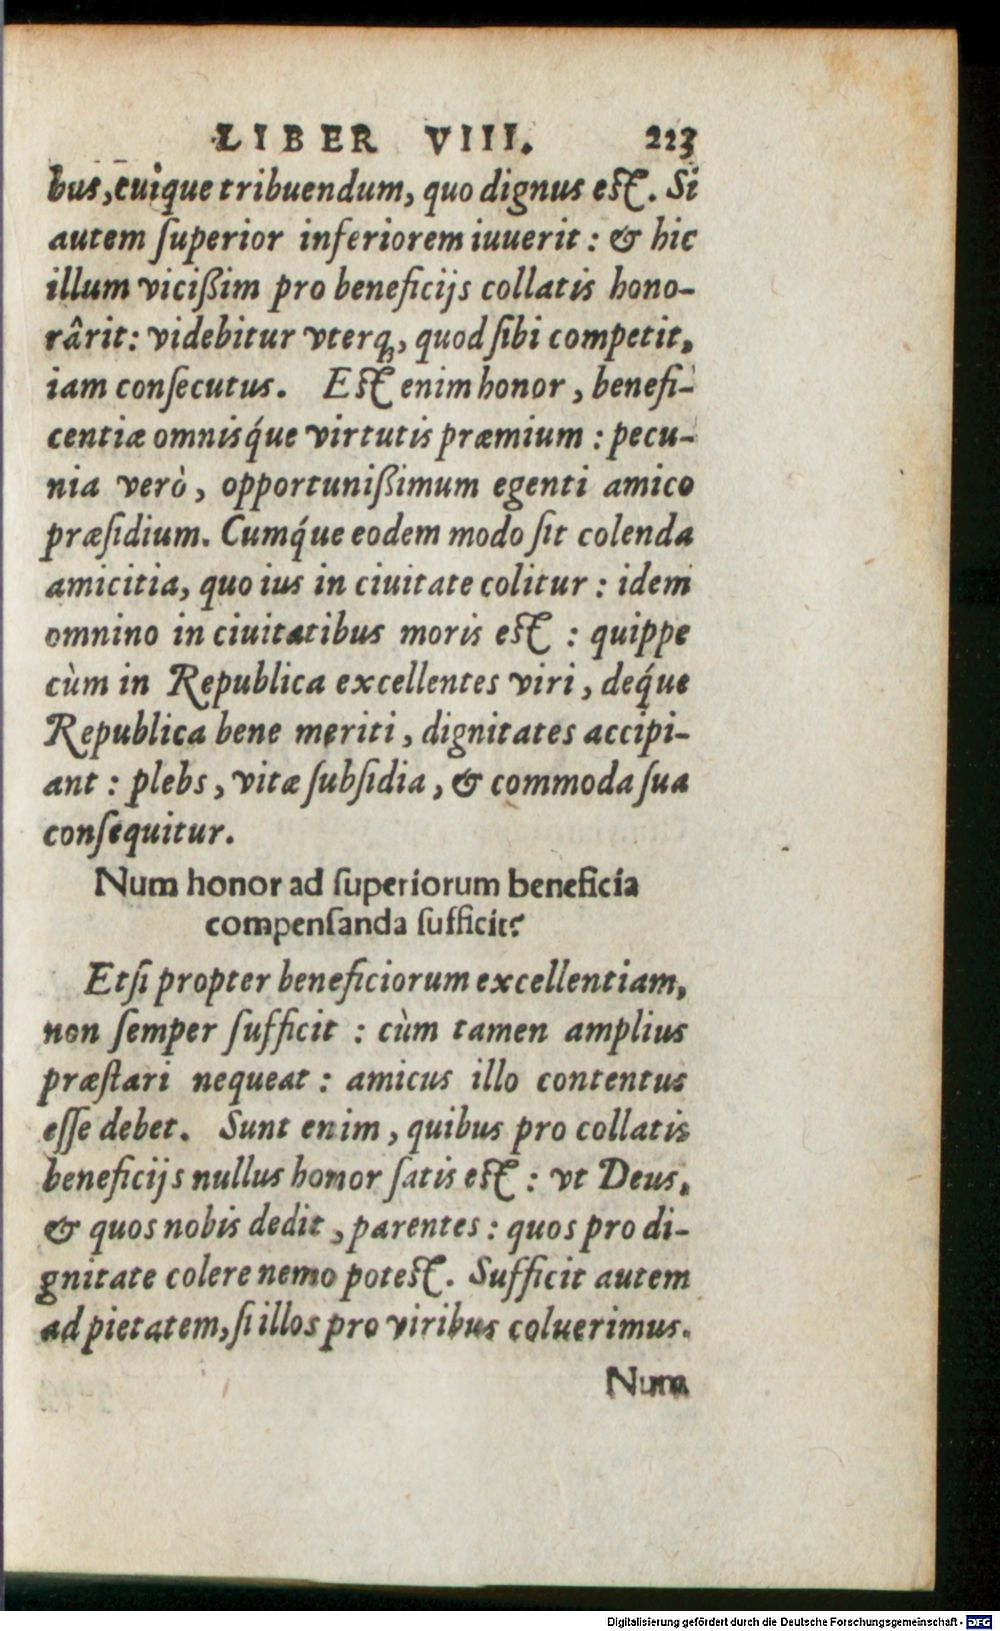 LIBER VIII. 223
bus, cuique tribuendum, quo dignus est. Si
autem ſuperior inferiorem iuuerit : & hic
illum vicißim pro beneficijs collatis hono-
rârit: videbitur vterq́;, quod ſibi competit,
iam conſecutus. Est enim honor, benefi-
centiæ omnisq́ue virtutis præmium : pecu-
nia verò, opportunißimum egenti amico
præſidium. Cumq́ue eodem modo ſit colenda
amicitia, quo ius in ciuitate colitur : idem
omnino in ciuitatibus moris est : quippe
cùm in Republica excellentes viri, deq́ue
Republica bene meriti, dignitates accipi-
ant : plebs, vitæ ſubſidia, & commoda ſua
conſequitur.
Num honor ad ſuperiorum beneficia
compenſanda ſufficit?
Etſi propter beneficiorum excellentiam,
non ſemper ſufficit : cùm tamen amplius
præſtari nequeat : amicus illo contentus
eſſe debet. Sunt enim, quibus pro collatis
beneficijs nullus honor ſatis est : vt Deus,
& quos nobis dedit, parentes : quos pro di-
gnitate colere nemo potest. Sufficit autem
ad pietatem, ſi illos pro viribus coluerimus.
Num
Digitalisierung gefördert durch die Deutsche Forschungsgemeinschaft - DFG